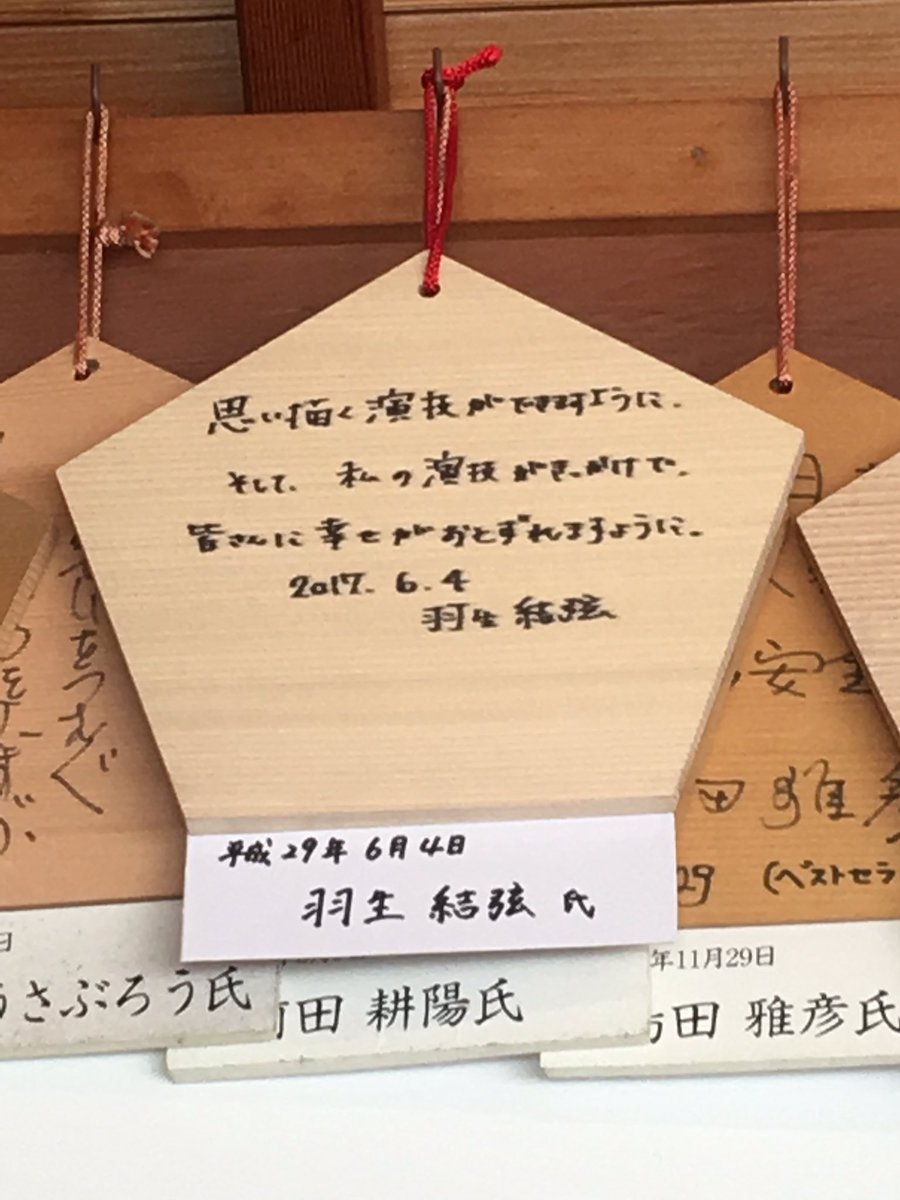 思い描く演技ができますように.
そして、私の演技がきっかけで、
皆さんに幸せがおとずれますように。
2017. 6. 4
羽生 結弦
平成29年 6月4日
羽生 結弦 氏
をつむぐ
安全
田 雅彦
29 (ベストセラ
日
うさぶろう氏
田 耕陽氏
年11月29日
田 雅彦氏